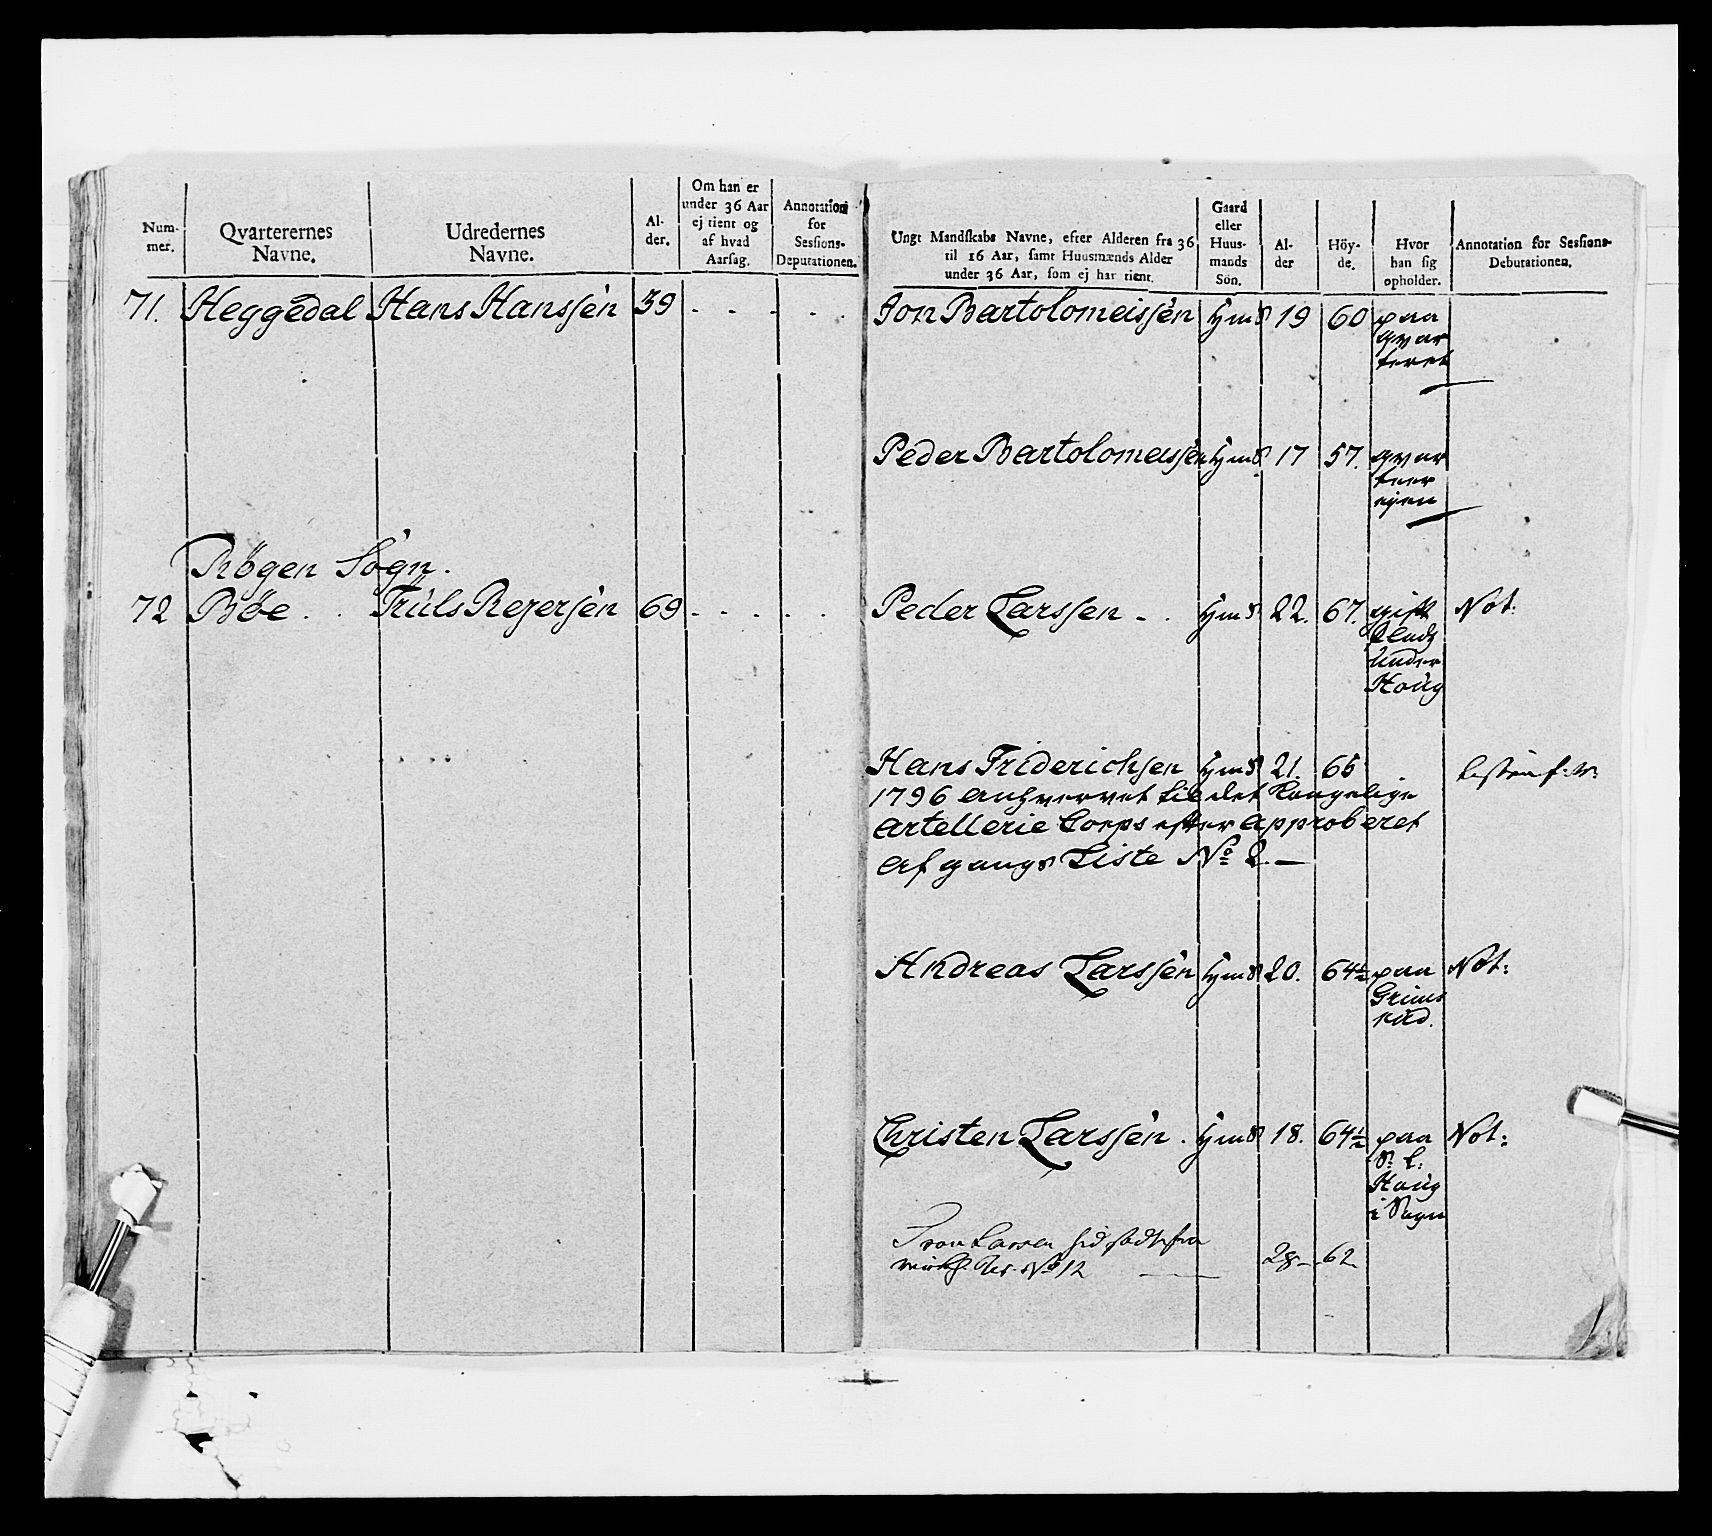 Num-
mer.
Qvarterernes
Navne.
Udredernes
Navne.
Al-
der.
Om han er
under 36 Aar
ej tient og
af hvad
Aarsag.
Annotation
for
Sessions-
Deputationen.
71. Heggedal Hans Hanssen 39 - - - - -
Røgen Sogn.
72 Bøe . . Truls Rejersen 69 - - - - -
Ungt Mandskabs Navne, efter Alderen fra 36
til 16 Aar, samt Huusmænds Alder
under 36 Aar, som ej har tient.
Gaard
eller
Huus-
mands
Sön.
Al-
der
Höy-
de.
Hvor
han sig
opholder.
Annotation for Sessions-
Debutationen.
Jon Bartolomeissen HmS 19 60 paa
qvar
teret
Peder Bartolomeissen HmS 17 57. qvar
teer
eyen
Peder Larssen - . HmS 22. 67. gift Not:
Plads
under
Houg
Hans Friderichsen HmS 21. 65
1796 anhvervet til det Kongelige
Artellerie Corps efter Approberet
Afgangs Liste No 2. —
Andreas Larssen HmS 20. 64½ paa Not:
Grims
rud.
Christen Larssen . HmS 18. 64½ paa Not:
Houg
i Sogn
Larsen hid fra 28 - 62
No 12